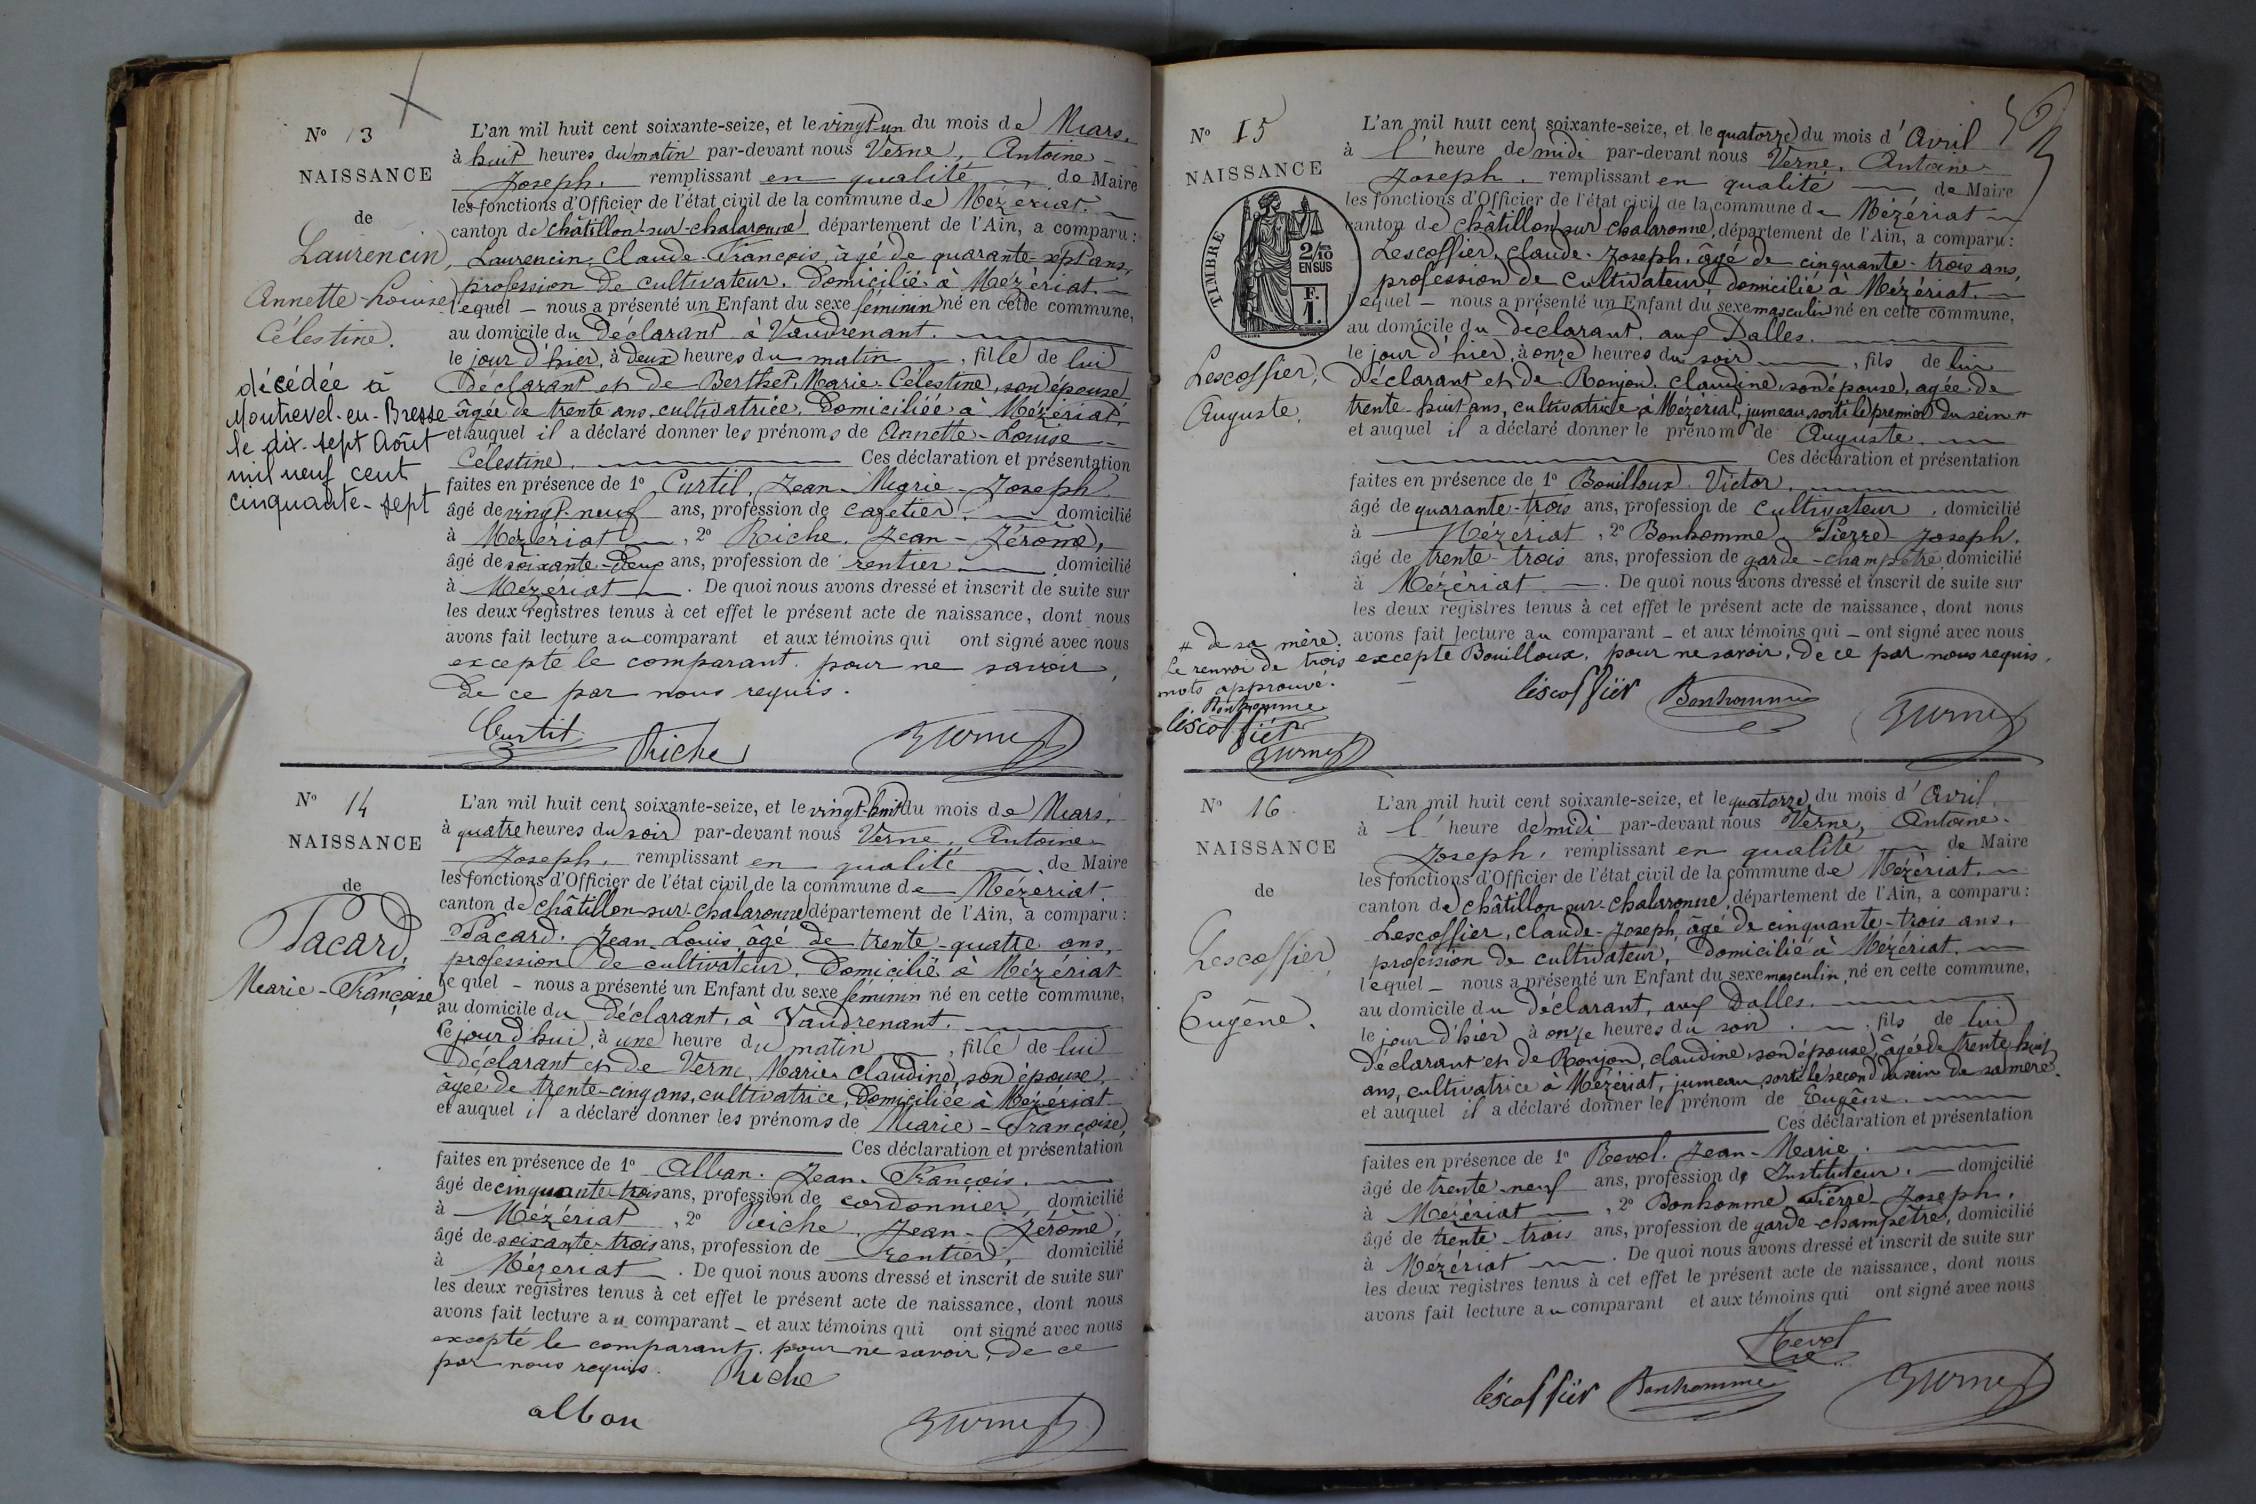 N° 13
NAISSANCE
de
Laurencin,
Annette-Louise
Célestine.
décédée à
Montrevel-en-Bresse
le dix-sept Août
mil neuf cent
cinquante-sept
L'an mil huit cent soixante-seize, et le vingt-un du mois de Mars.
à huit heures du matin par-devant nous Verne, Antoine-
Joseph. remplissant en qualité de Maire
les fonctions d'Officier de l'état civil de la commune de Mézériat.
canton de Châtillon-sur-Chalaronne département de l'Ain, a comparu :
Laurencin, Claude-François, âgé de quarante-sept ans,
profession de cultivateur. Domicilié à Mézériat.
lequel – nous a présenté un Enfant du sexe féminin né en cette commune,
au domicile du Déclarant à Vaudrenant.
le jour d'hier, à deux heures du matin, fille de lui
Déclarant et de Berthet, Marie-Célestine, son épouse,
âgée de trente ans, cultivatrice, Domiciliée à Mézériat,
et auquel il a déclaré donner les prénoms de Annette-Louise-
Célestine. Ces déclaration et présentation
faites en présence de 1° Curtil, Jean-Marie-Joseph
âgé de vingt-neuf ans, profession de cafetier. domicilié
à Mézériat, 2° Riche. Jean-Jérôme,
âgé de soixante-deux ans, profession de rentier domicilié
à Mézériat. De quoi nous avons dressé et inscrit de suite sur
les deux registres tenus à cet effet le présent acte de naissance, dont nous
avons fait lecture au comparant et aux témoins qui ont signé avec nous
excepté le comparant. pour ne savoir,
De ce par nous requis.
Curtil Riche Verne
N° 14
NAISSANCE
de
Pacard,
Marie-Françoise
L'an mil huit cent soixante-seize, et le vingt-huit du mois de Mars.
à quatre heures du soir par-devant nous Verne, Antoine-
Joseph. remplissant en qualité de Maire
les fonctions d'Officier de l'état civil de la commune de Mézériat.
canton de Châtillon-sur-Chalaronne département de l'Ain, a comparu :
Pacard. Jean-Louis, âgé de trente-quatre ans,
profession de cultivateur, Domicilié à Mézériat
lequel – nous a présenté un Enfant du sexe féminin né en cette commune,
au domicile du Déclarant, à Vaudrenant.
ce jourd'hui, à une heure du matin, fille de lui
Déclarant et de Verne, Marie Claudine, son épouse,
âgée de trente-cinq ans, cultivatrice, Domiciliée à Mézériat
et auquel il a déclaré donner les prénoms de Marie-Françoise,
Ces déclaration et présentation
faites en présence de 1° Alban. Jean-François.
âgé de cinquante-trois ans, profession de cordonnier, domicilié
à Mézériat, 2° Riche, Jean-Jérôme,
âgé de soixante-trois ans, profession de rentier, domicilié
à Mézériat. De quoi nous avons dressé et inscrit de suite sur
les deux registres tenus à cet effet le présent acte de naissance, dont nous
avons fait lecture au comparant – et aux témoins qui ont signé avec nous
excepté le comparant. pour ne savoir, De ce
par nous requis. Riche
alban Verne
N° 15
NAISSANCE
TIMBRE
2/10
EN SUS
F.
1.
Lescoffier,
Auguste.
L'an mil huit cent soixante-seize, et le quatorze du mois d'Avril
à l'heure de midi par-devant nous Verne, Antoine-
Joseph. remplissant en qualité de Maire
les fonctions d'Officier de l'état civil de la commune de Mézériat
canton de Châtillon sur Chalaronne, département de l'Ain, a comparu :
Lescoffier, Claude-Joseph, âgé de cinquante-trois ans,
profession de Cultivateur, domicilié à Mézériat.
lequel – nous a présenté un Enfant du sexe masculin né en cette commune,
au domicile du déclarant, aux Dalles.
le jour d'hier, à onze heures du soir, fils de lui
Déclarant et de Ronjon, Claudine, son épouse, agée de
trente-huit ans, cultivatrice à Mézériat, jumeau, sorti le premier du sein #
et auquel il a déclaré donner le prénom de Auguste.
Ces déclaration et présentation
faites en présence de 1° Bouilloux Victor.
âgé de quarante-trois ans, profession de cultivateur, domicilié
à Mézériat, 2° Bonhomme Pierre-Joseph.
âgé de trente-trois ans, profession de garde-champêtre, domicilié
à Mézériat. De quoi nous avons dressé et inscrit de suite sur
les deux registres tenus à cet effet le présent acte de naissance, dont nous
avons fait lecture au comparant – et aux témoins qui – ont signé avec nous
excepté Bouilloux, pour ne savoir, De ce par nous requis.
léscoffiér Bonhomme Verne
# de sa mère.
Le renvoi de trois
mots approuvé.
Bonhomme
léscoffiér
Verne
N° 16
NAISSANCE
de
Lescoffier,
Eugène.
L'an mil huit cent soixante-seize, et le quatorze du mois d'Avril.
à l'heure de midi par-devant nous Verne, Antoine-
Joseph, remplissant en qualité de Maire
les fonctions d'Officier de l'état civil de la commune de Mézériat.
canton de Châtillon sur-Chalaronne, département de l'Ain, a comparu :
Lescoffier, Claude-Joseph, âgé de cinquante-trois ans,
profession de cultivateur, Domicilié à Mézériat.
lequel – nous a présenté un Enfant du sexe masculin, né en cette commune,
au domicile du Déclarant, aux Dalles.
le jour d'hier à onze heures du soir. fils de lui
Déclarant et de Ronjon, Claudine, son épouse, âgée de trente-huit
ans, cultivatrice à Mézériat, jumeau, sorti le second du sein de sa mère.
et auquel il a déclaré donner le prénom de Eugène.
Ces déclaration et présentation
faites en présence de 1° Revel. Jean-Marie.
âgé de trente-neuf ans, profession de Instituteur. domicilié
à Mézériat, 2° Bonhomme Pierre-Joseph,
âgé de trente-trois ans, profession de garde-champêtre, domicilié
à Mézériat. De quoi nous avons dressé et inscrit de suite sur
les deux registres tenus à cet effet le présent acte de naissance, dont nous
avons fait lecture au comparant et aux témoins qui ont signé avec nous
Revel
léscoffiér Bonhomme Verne